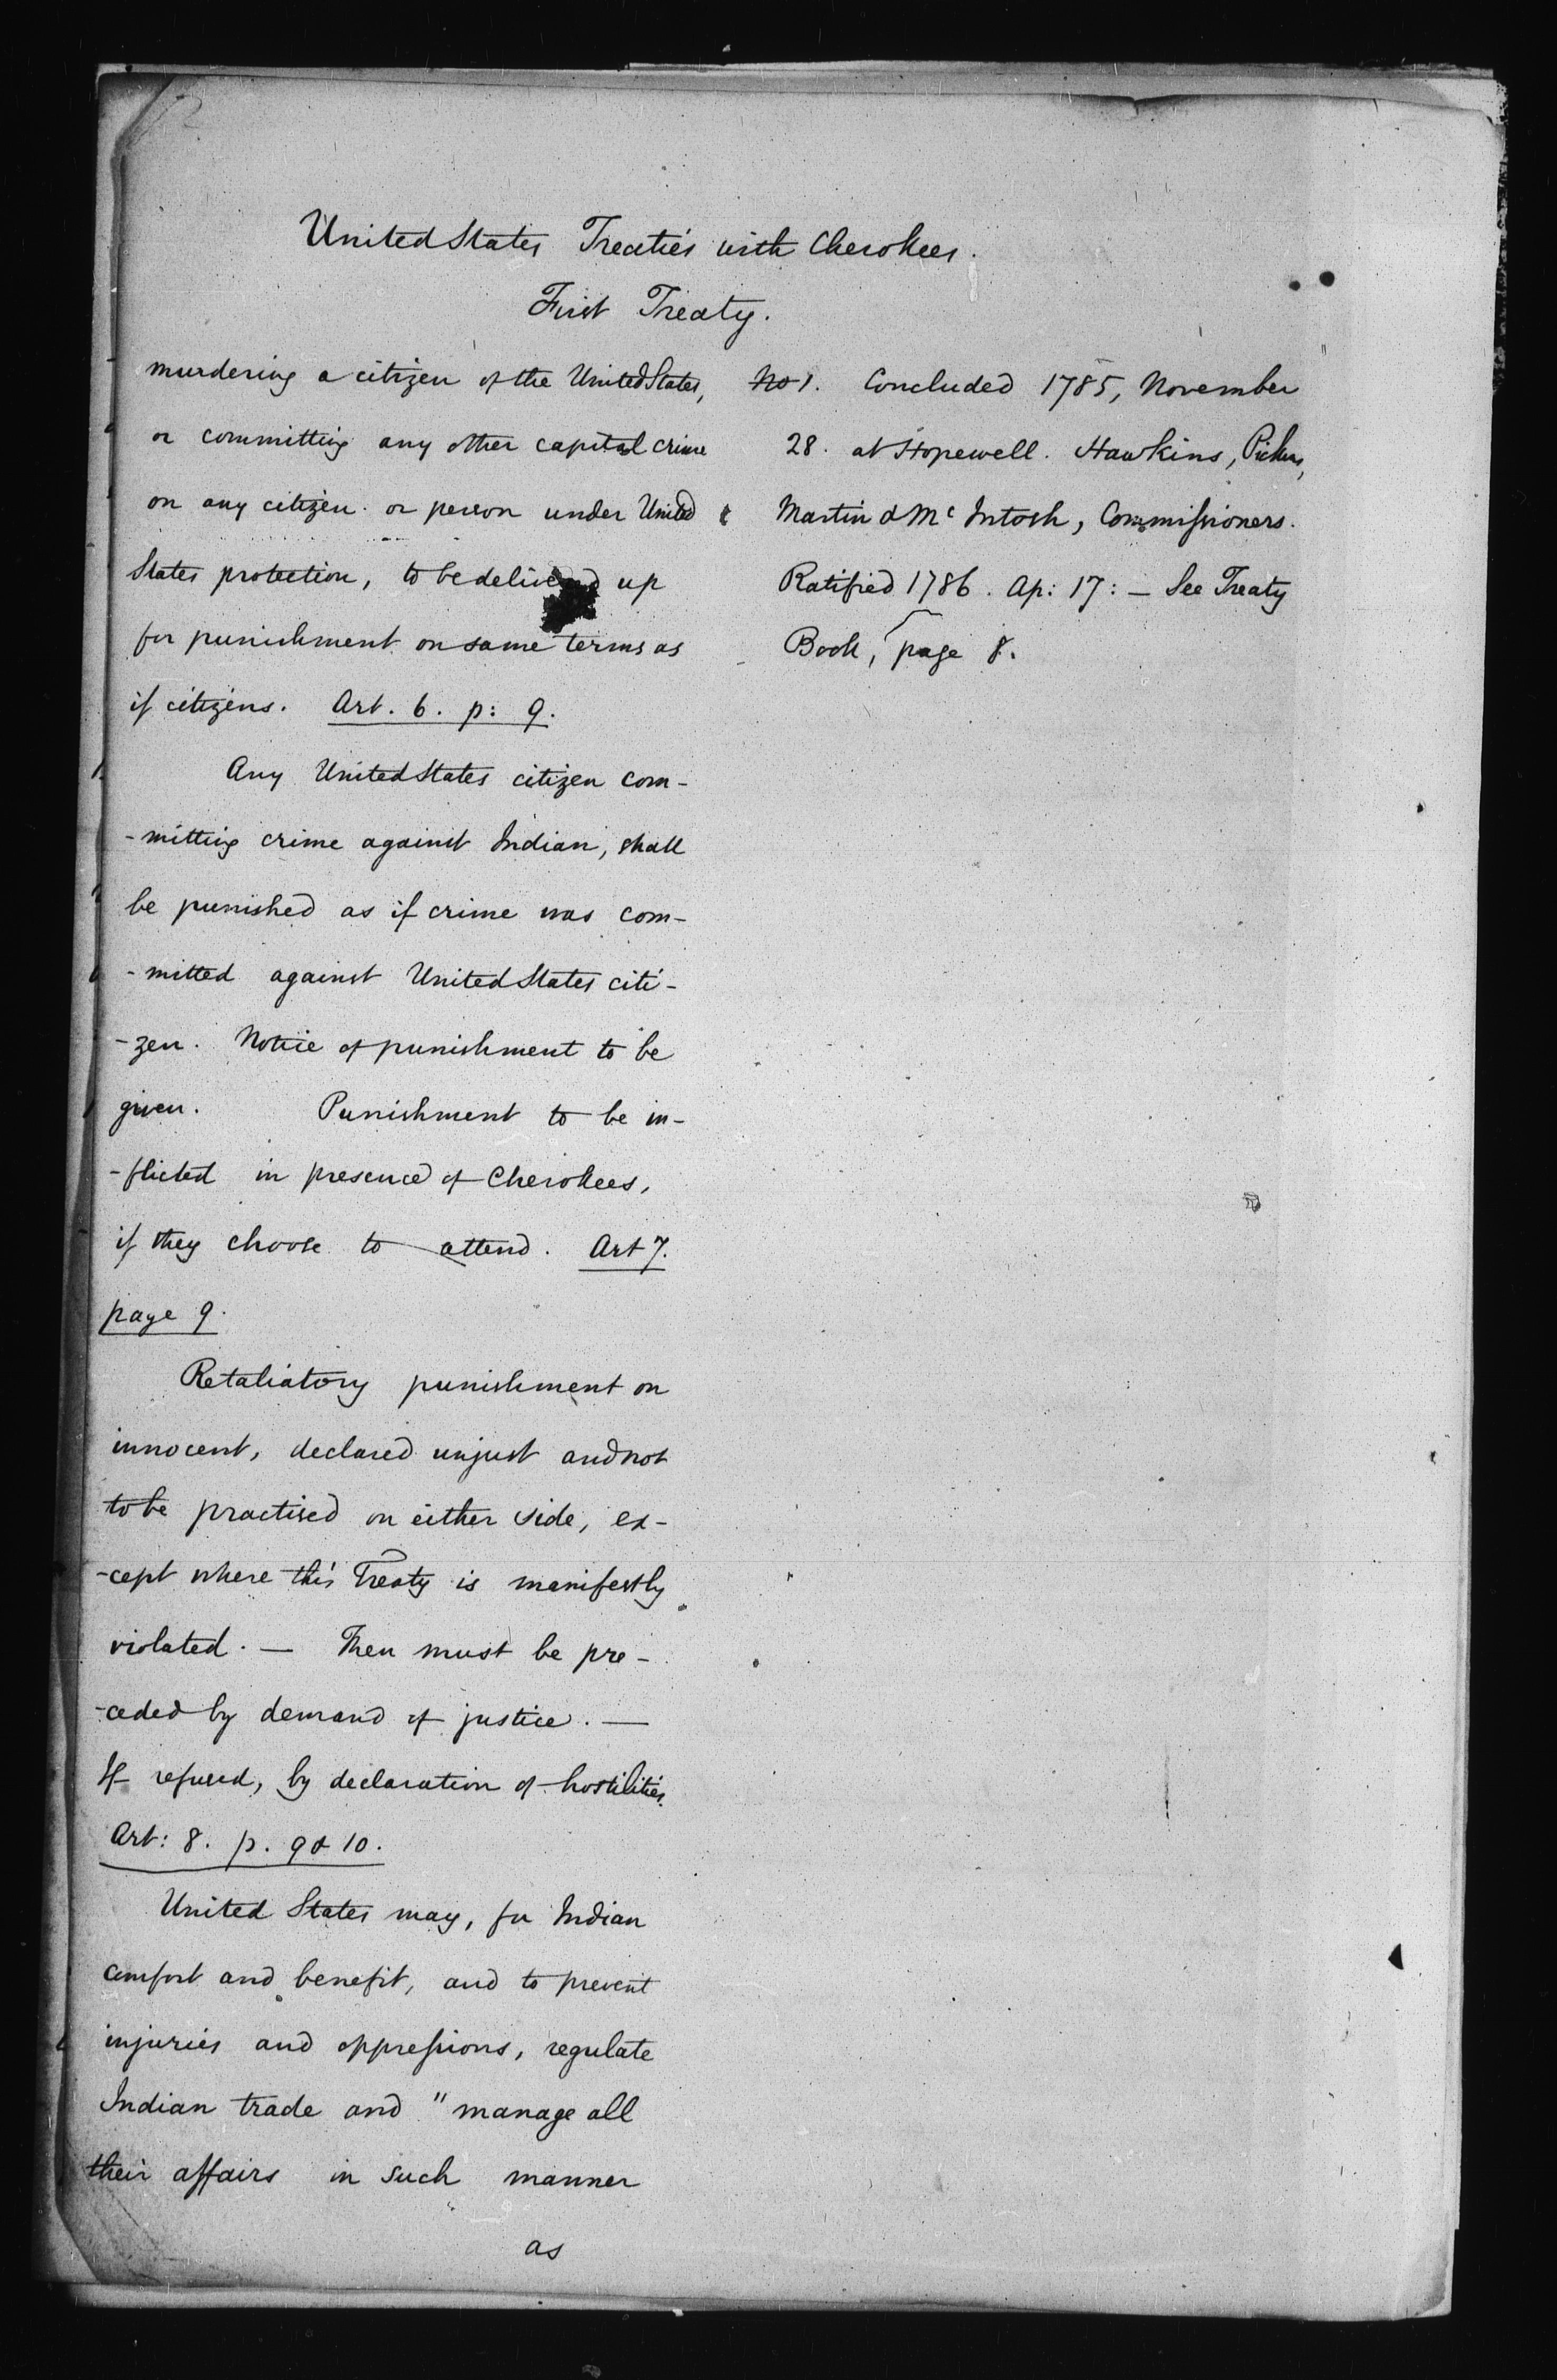 United States Treaties with Cherokees.
First Treaty.
murdering a citizen of the United States,
or committing any other capital crime
on any citizen or person under United
States protection, to be delivered up
for punishment on same terms as
if citizens. Art. 6. p: 9.
Any United States citizen com-
-mitting crime against Indian, shall
be punished as if crime was com-
-mitted against United States citi-
-zen. Notice of punishment to be
given. Punishment to be in-
-flicted in presence of Cherokees,
if they choose to attend. Art 7.
page 9.
Retaliatory punishment on
innocent, declared unjust and not
to be practised on either side, ex-
-cept where this Treaty is manifestly
violated. — Then must be pre-
-ceded by demand of justice. —
If refused, by declaration of hostilities.
Art: 8. p. 9 & 10.
United States may, for Indian
comfort and benefit, and to prevent
injuries and oppressions, regulate
Indian trade and "manage all
their affairs in such manner
as
No 1. Concluded 1785, November
28. at Hopewell. Hawkins, Pickens,
Martin & Mc Intosh, Commissioners.
Ratified 1786. Ap: 17: — See Treaty
Book, page 8.